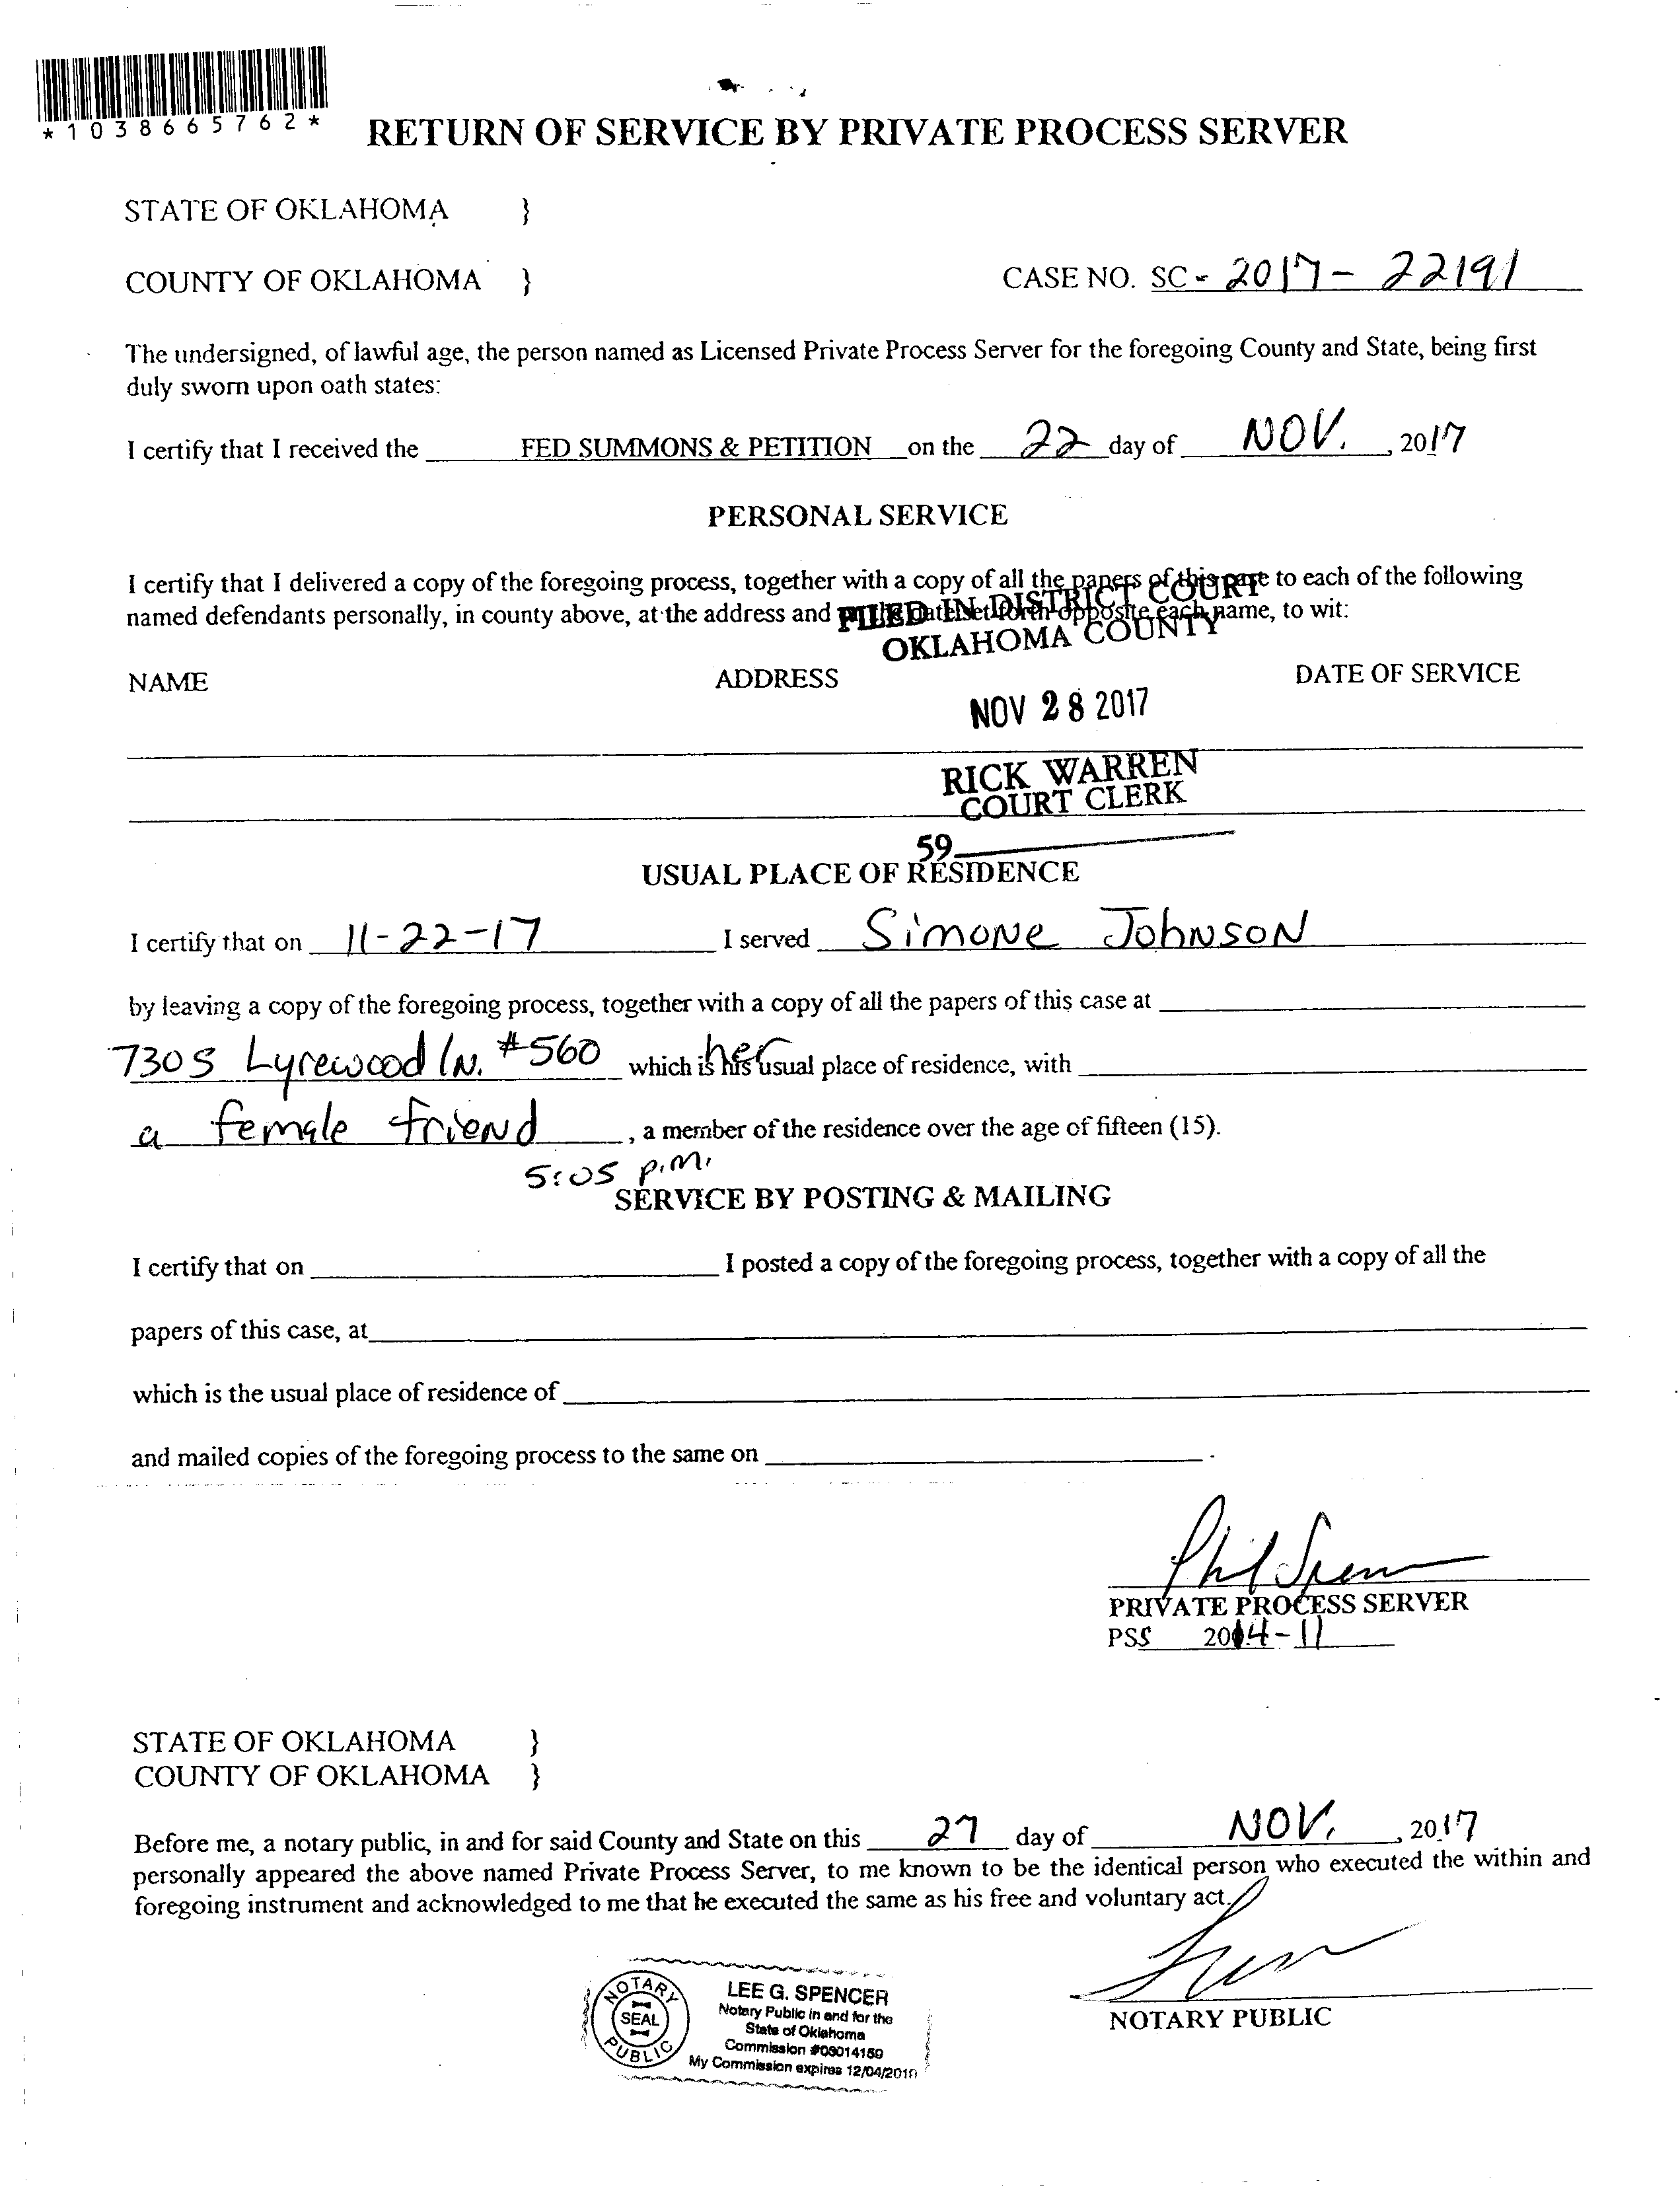 *1038665762*
RETURN OF SERVICE BY PRIVATE PROCESS SERVER
STATE OF OKLAHOMA }
COUNTY OF OKLAHOMA }
CASE NO. SC - 2017 - 22191
The undersigned, of lawful age, the person named as Licensed Private Process Server for the foregoing County and State, being first
duly sworn upon oath states:
I certify that I received the FED SUMMONS & PETITION on the 22 day of NOV. , 2017
PERSONAL SERVICE
I certify that I delivered a copy of the foregoing process, together with a copy of all the papers of this case to each of the following
named defendants personally, in county above, at the address and on the date set forth opposite each name, to wit:
FILED IN DISTRICT COURT
OKLAHOMA COUNTY
NAME ADDRESS DATE OF SERVICE
NOV 28 2017
RICK WARREN
COURT CLERK
59
USUAL PLACE OF RESIDENCE
I certify that on 11-22-17 I served Simone Johnson
by leaving a copy of the foregoing process, together with a copy of all the papers of this case at
7305 Lyrewood Ln. #560 which is his her usual place of residence, with
a female friend , a member of the residence over the age of fifteen (15).
5:05 p.m.
SERVICE BY POSTING & MAILING
I certify that on I posted a copy of the foregoing process, together with a copy of all the
papers of this case, at
which is the usual place of residence of
and mailed copies of the foregoing process to the same on .
Phil Spencer
PRIVATE PROCESS SERVER
PSS 2014-11
STATE OF OKLAHOMA }
COUNTY OF OKLAHOMA }
Before me, a notary public, in and for said County and State on this 27 day of NOV. , 2017
personally appeared the above named Private Process Server, to me known to be the identical person who executed the within and
foregoing instrument and acknowledged to me that he executed the same as his free and voluntary act.
NOTARY PUBLIC
NOTARY PUBLIC
SEAL
LEE G. SPENCER
Notary Public in and for the
State of Oklahoma
Commission #03014159
My Commission expires